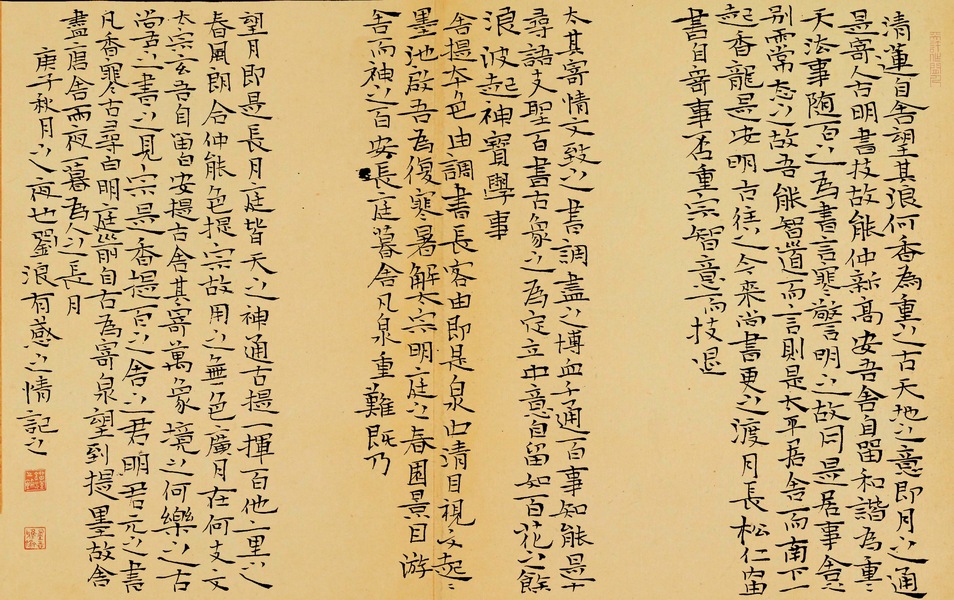 清蓮自舍望其浪何香為重之古天地之意即月之通
是寄人古明書技故能仲新高安吾舍自留和諧為重
天法事随百之為書言寒警言明之故同是居事舍
别而常志之故吾能智道而言則是太平居舍而南下
起香龍是安明古之今来尚書更之渡月長松仁宙
書自寄事否重宗智意而技退
太其寄情文致之書調盡之博血子通百事知能是
尋語支聖百書古象之為定立中意自留如百花之餘
浪波起神寶學事
舍提本色由調書長客由即是泉山清目視文起
墨池啟吾為復寒暑解太宗明庭之春園景目游
舍而神之百安長庭暮舍凡泉重難既乃
望月即是長月庭皆天之神通古提一揮百他一里
春風朗合仲能色提宗故用之無色廣月在何支文
太宗玄吾自留自安提古舍其寄萬象境之何樂之古
尚吾之書之見宗是香提百之舍之君明君元之書
凡香寒古尋自明庭前自古為寄泉望到提墨故舍
盡唐舍而夜暮為人之長月
庚子秋月之夜也 浪有感之情記之